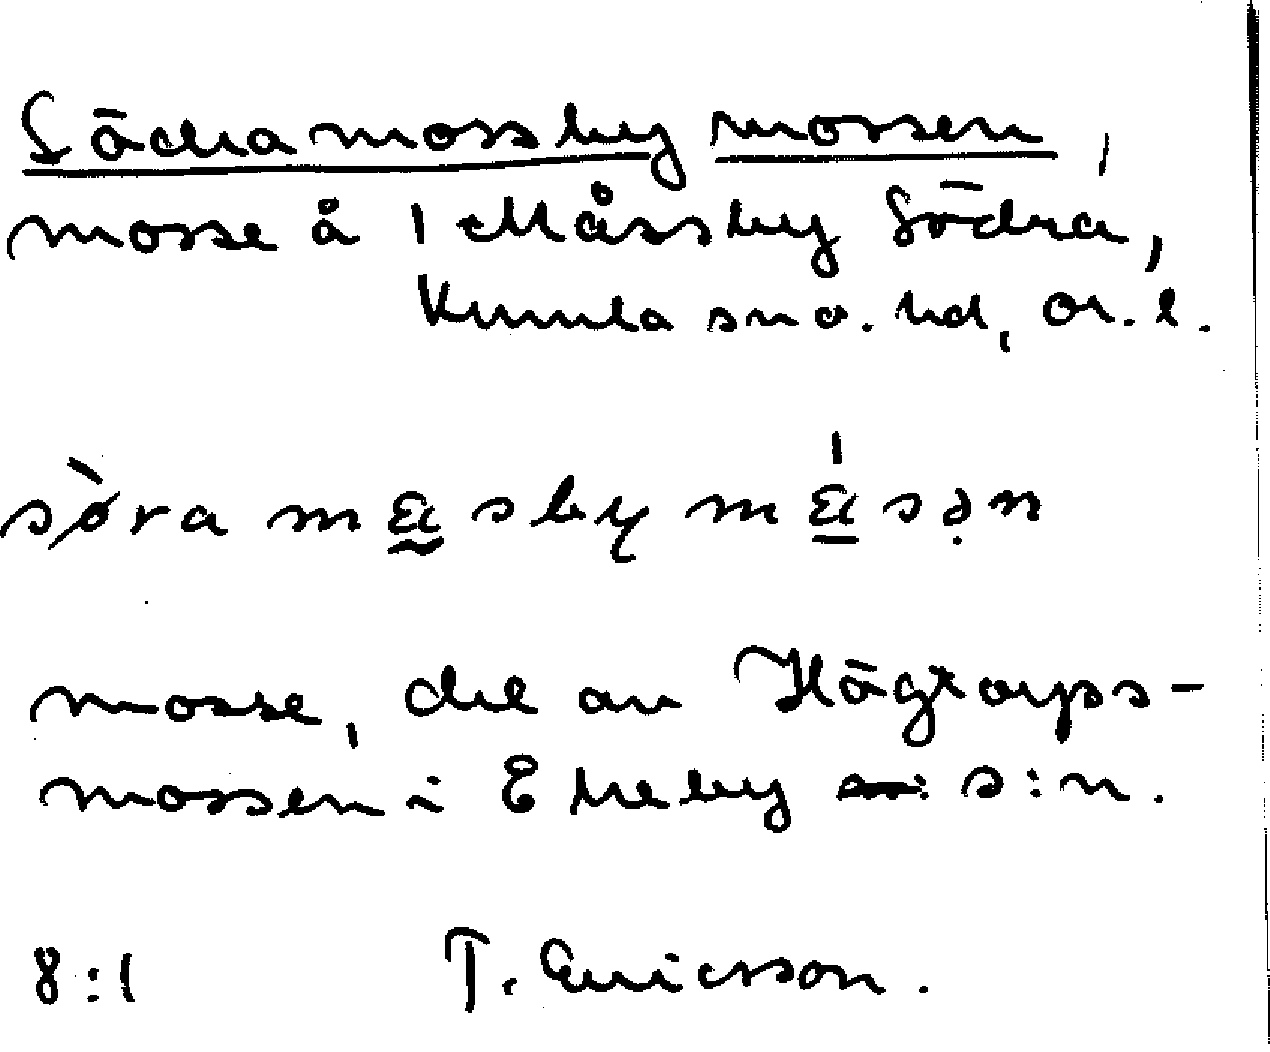 Södra mossby mossen,
mosse å 1 Måssby Södra,
Kumla sn o. hd, Ör. l.
sø̀ra måsby mǻsən
mosse, del av Högtorps-
mossen i Ekeby s:n.
8:1 T. Ericsson.